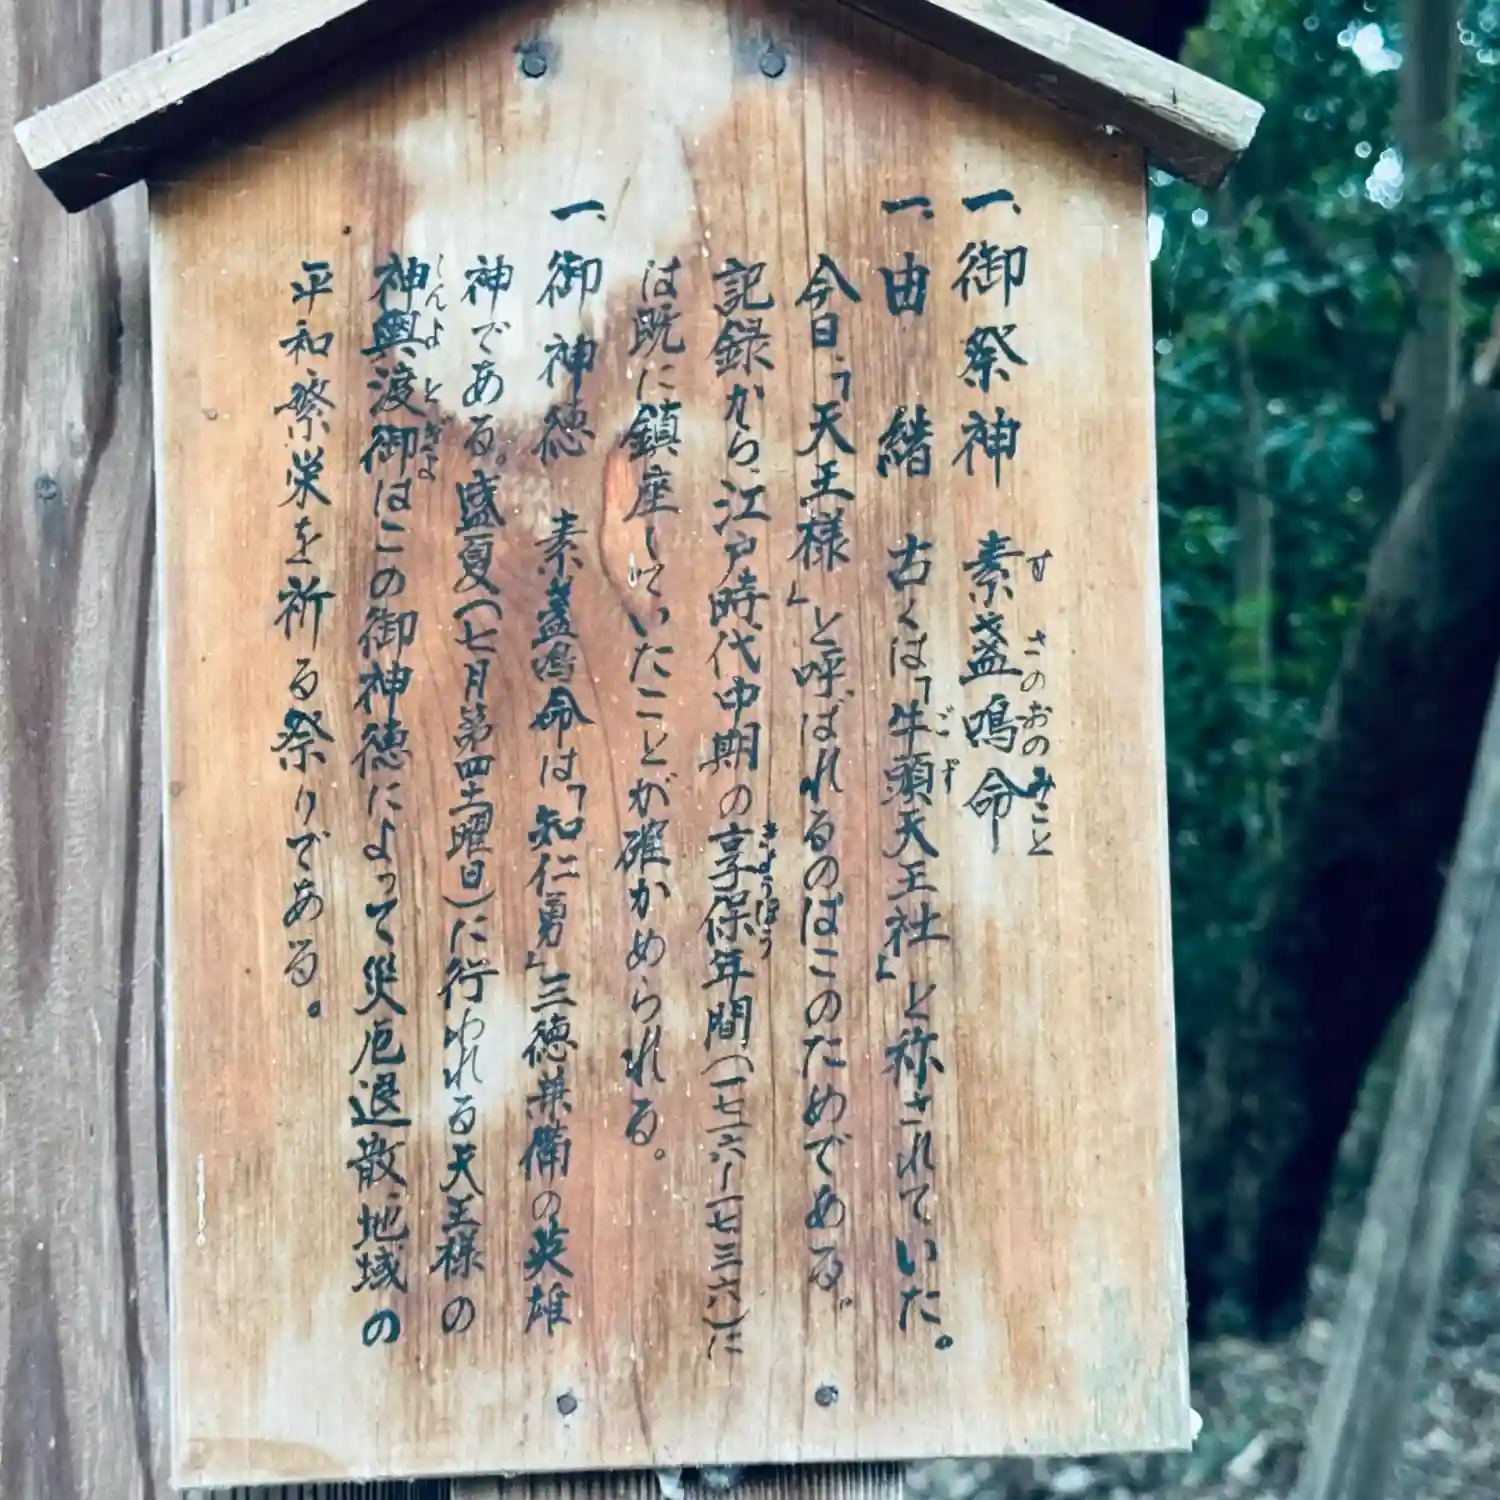 一、御祭神　素盞嗚命
す　さのおのみこと
一、由　緒　古くは「牛頭天王社」と祢されていた。
ごず
今日、「天王様」と呼ばれるのはこのためである。
記録から、江戸時代中期の享保年間(一七一六ー一七三六)に
きょうほう
は既に鎮座していたことが確かめられる。
一、御神徳　素盞嗚命は「知仁勇」三徳兼備の英雄
神である。盛夏(七月第四土曜日)に行われる天王様の
神輿渡御はこの御神徳によって災厄退散、地域の
しんよとぎよ
平和繁栄を祈る祭りである。